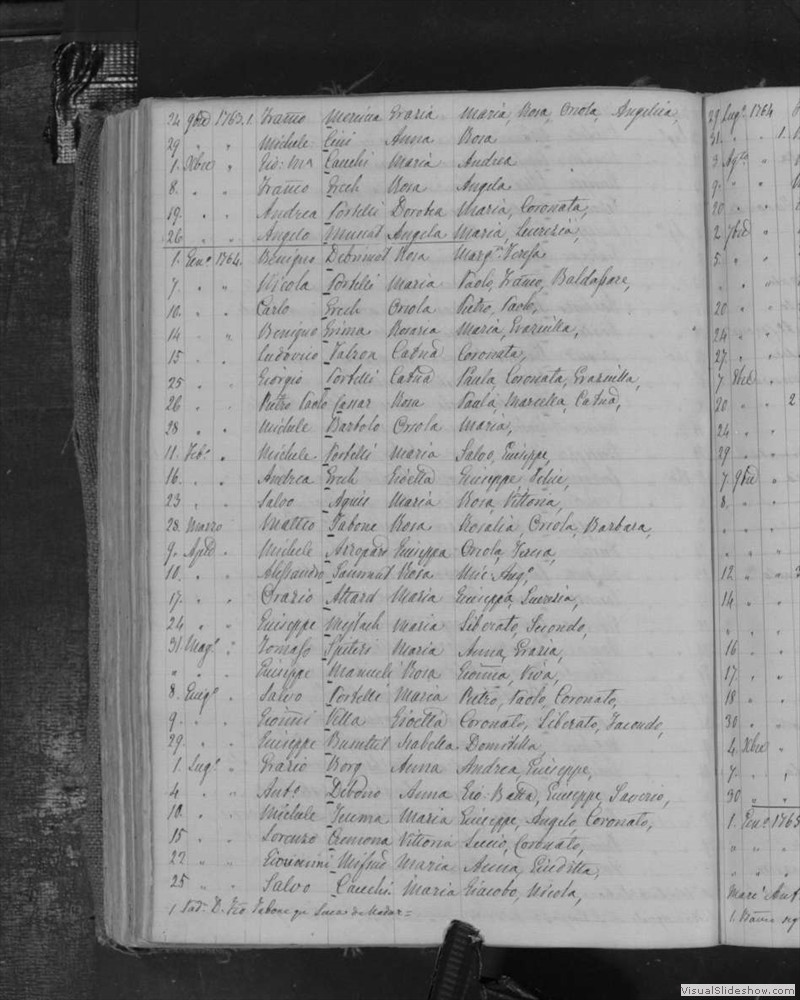 24 9bre 1763. 1. Franco Mercieca Grazia Maria, Rosa, Orsola, Angelica,
29 " " Michele Cini Anna Rosa
1. Xbre " Gio: Ma Cauchi Maria Andrea
8. " " Franco Grech Rosa Angela
19. " " Andrea Portelli Dorotea Maria, Coronata,
26 " " Angelo Muscat Angela Maria, Lucrezia,
1. Gen.o 1764. Benigno Debrincat Rosa Marga Teresa
7. " " Nicola Portelli Maria Paolo, Franco, Baldassare,
10. " " Carlo Grech Orsola Pietro, Paolo,
14 " " Benigno Grima Rosaria Maria, Graziulla,
15 " " Ludovico Falzon Catna Coronata,
25 " " Giorgio Portelli Catna Paula, Coronata, Graziulla,
26 " " Pietro Paolo Cassar Rosa Paula, Marietta, Catna,
28 " " Michele Barbolo Orsola Maria,
11. Feb.o " Michele Portelli Maria Salvo, Giuseppe,
16. " " Andrea Grech Gioetta Giuseppe, Felice,
23 " " Salvo Agius Maria Rosa, Vittoria,
28. Marzo Matteo Tabone Rosa Rosalia, Orsola, Barbara,
9. Aple " Michele Giuseppa Orsola, Teresa,
10. " " Alessandro Sammut Rosa Mic. Ang.o
17. " " Orazio Attard Maria Giuseppa, Lucrezia,
24 " " Giuseppe Mejlach Maria Liberato, Secondo,
31 Mag.o " Tomaso Spiteri Maria Anna, Grazia,
" " " Giuseppe Manueli Rosa Gioanna, Viva,
8. Giug.o " Salvo Portelli Maria Pietro, Paolo, Coronato,
9. " " Gioanni Vella Gioetta Coronato, Liberato, Facondo,
29. " " Giuseppe Busuttil Isabella Domitilla,
1. Lug.o " Grazio Borg Anna Andrea, Giuseppe,
4 " " Anto Debono Anna Gio. Batta, Giuseppe, Saverio,
10. " " Michele Teuma Maria Giuseppe, Angelo, Coronato,
15 " " Lorenzo Cremona Vittoria Lucio, Coronato,
22 " " Giovannini Mifsud Maria Anna, Giuditta,
25 " " Salvo Cauchi Maria Giacobo, Nicola,
1 D. Tabone
29 Lug.o 1764
31. " " 1.
3 Ag.to "
9. " "
20 " "
2 7bre "
5. " "
" " "
20 " "
24 " "
27. " "
7 8bre "
20 " " 2
24 " "
29 " "
7. 9bre "
8. " "
12 " " 3
14 " "
16 " "
17. " "
18 " "
30 " "
4 Xbre "
7. " "
30 " "
1. Gen.o 1765
VisualSlideshow.com